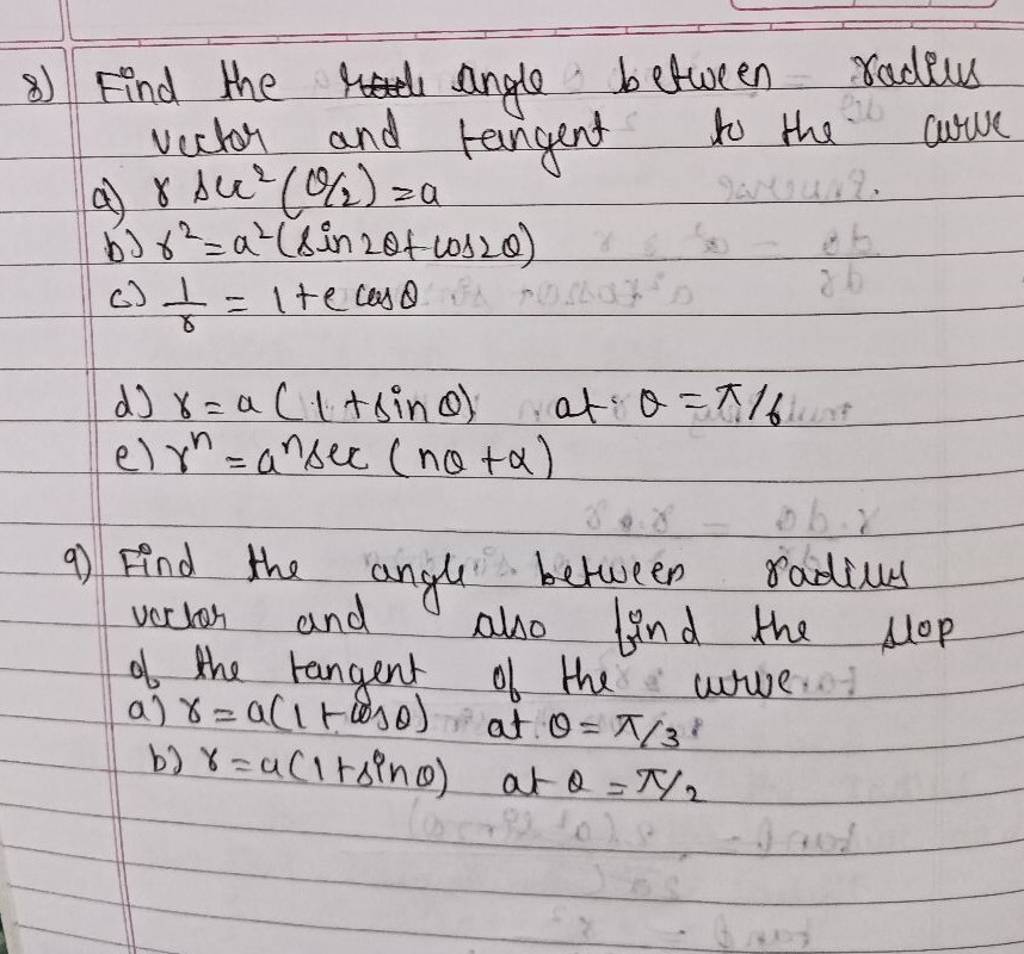 8) Find the angle between radius
vector and tangent to the curve
a) r sec²(θ/2) = a
b) r² = a²(sin2θ + cos2θ)
c) 1/r = 1 + e cosθ
d) r = a(1 + sinθ) at θ = π/6
e) rⁿ = aⁿ sec(nθ + α)
9) Find the angle between radius
vector and also find the slop
of the tangent of the curve
a) r = a(1 + cosθ) at θ = π/3
b) r = a(1 + sinθ) at θ = π/2